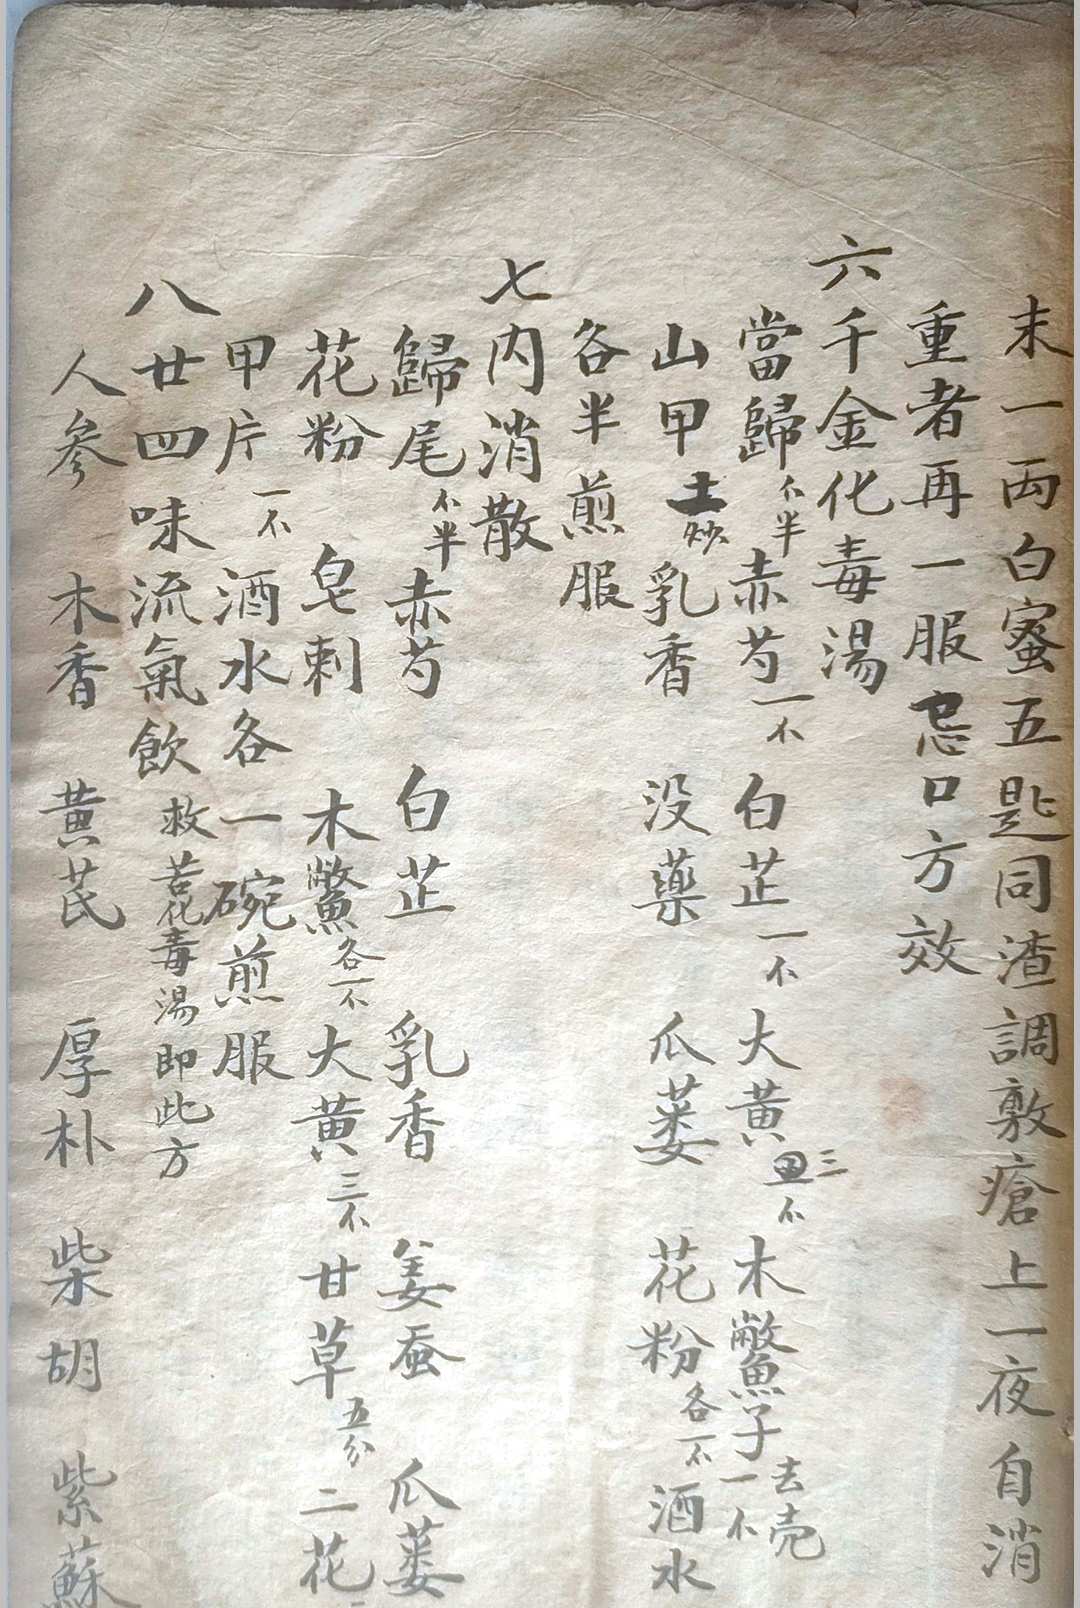 末一両白蜜五匙同渣調敷瘡上一夜自消
重者再一服忌口方效
六千金化毒湯
當歸不半赤芍一不白芷一不大黄三不木鱉子去壳一不
山甲土炒乳香没藥瓜蒌花粉各一不酒水
各半煎服
七内消散
歸尾不半赤芍白芷乳香姜蚕瓜蒌
花粉皂刺木鱉各一不大黄三不甘草五分二花
甲片一不酒水各一碗煎服
八廿四味流氣飲救苦化毒湯即此方
人參木香黄芪厚朴柴胡紫蘇